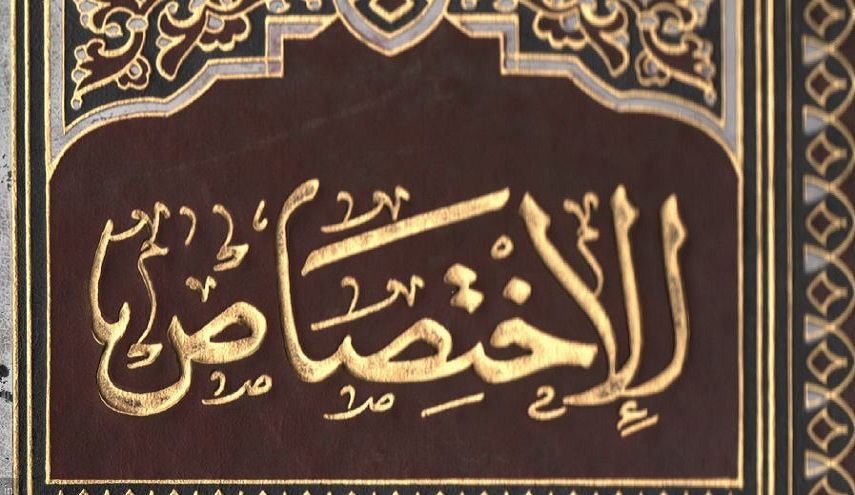 الإختصاص